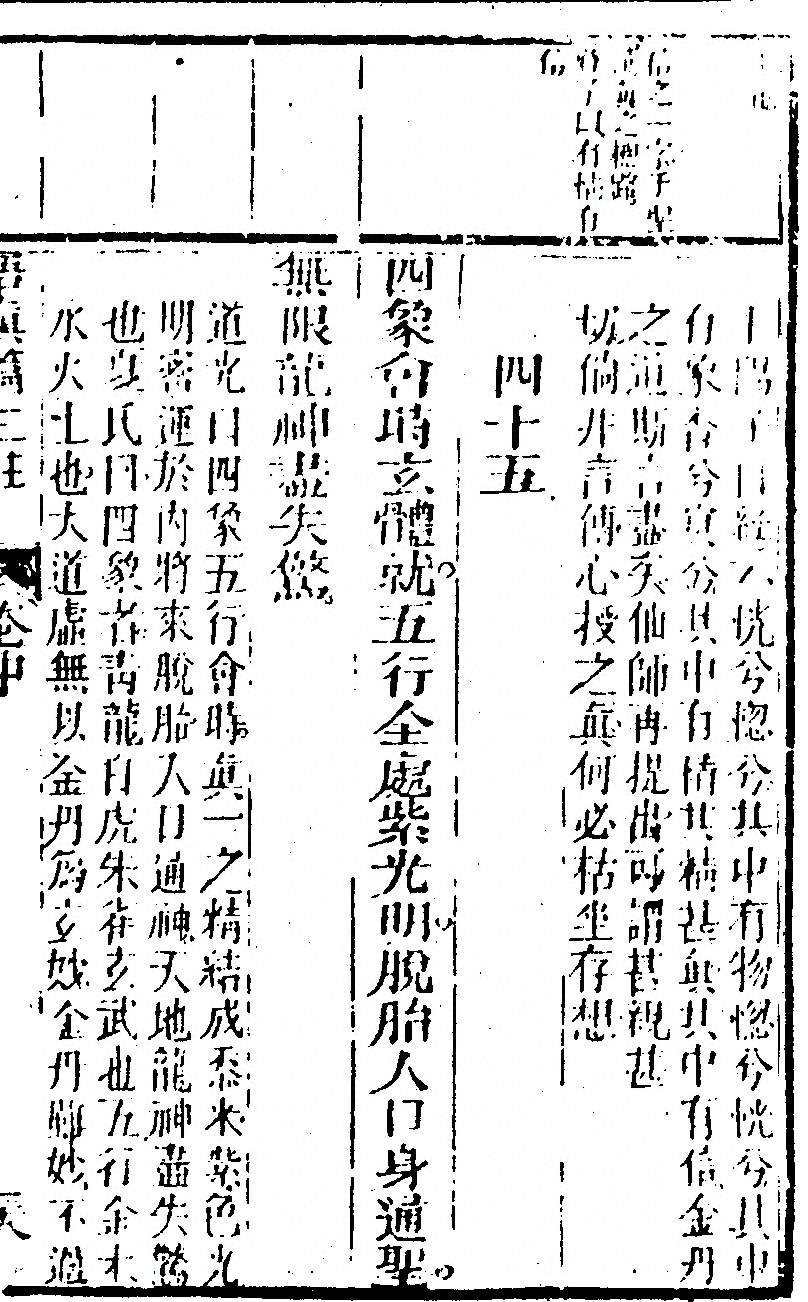 信之一字乃聖
道無之極路
有情有
信
子陽子曰經云恍兮惚兮其中有物惚兮恍兮其中
有象杳兮冥兮其中有情其精甚真其中有信金丹
之道斯言盡矣仙師再提出可謂甚親甚
切倘非言傳心授之真何必枯坐存想
四十五
四象會時玄體就五行全處紫光明脫胎入口身通聖
無限龍神盡失驚
道光曰四象五行會時真一之精結成黍米紫色光
明密運於內將來脫胎入口通神天地龍神盡失驚
也真氏曰四象者青龍白虎朱雀玄武也五行金木
水火土也大道虛無以金丹為玄妙金丹雖妙不過
悟真篇三注
卷中